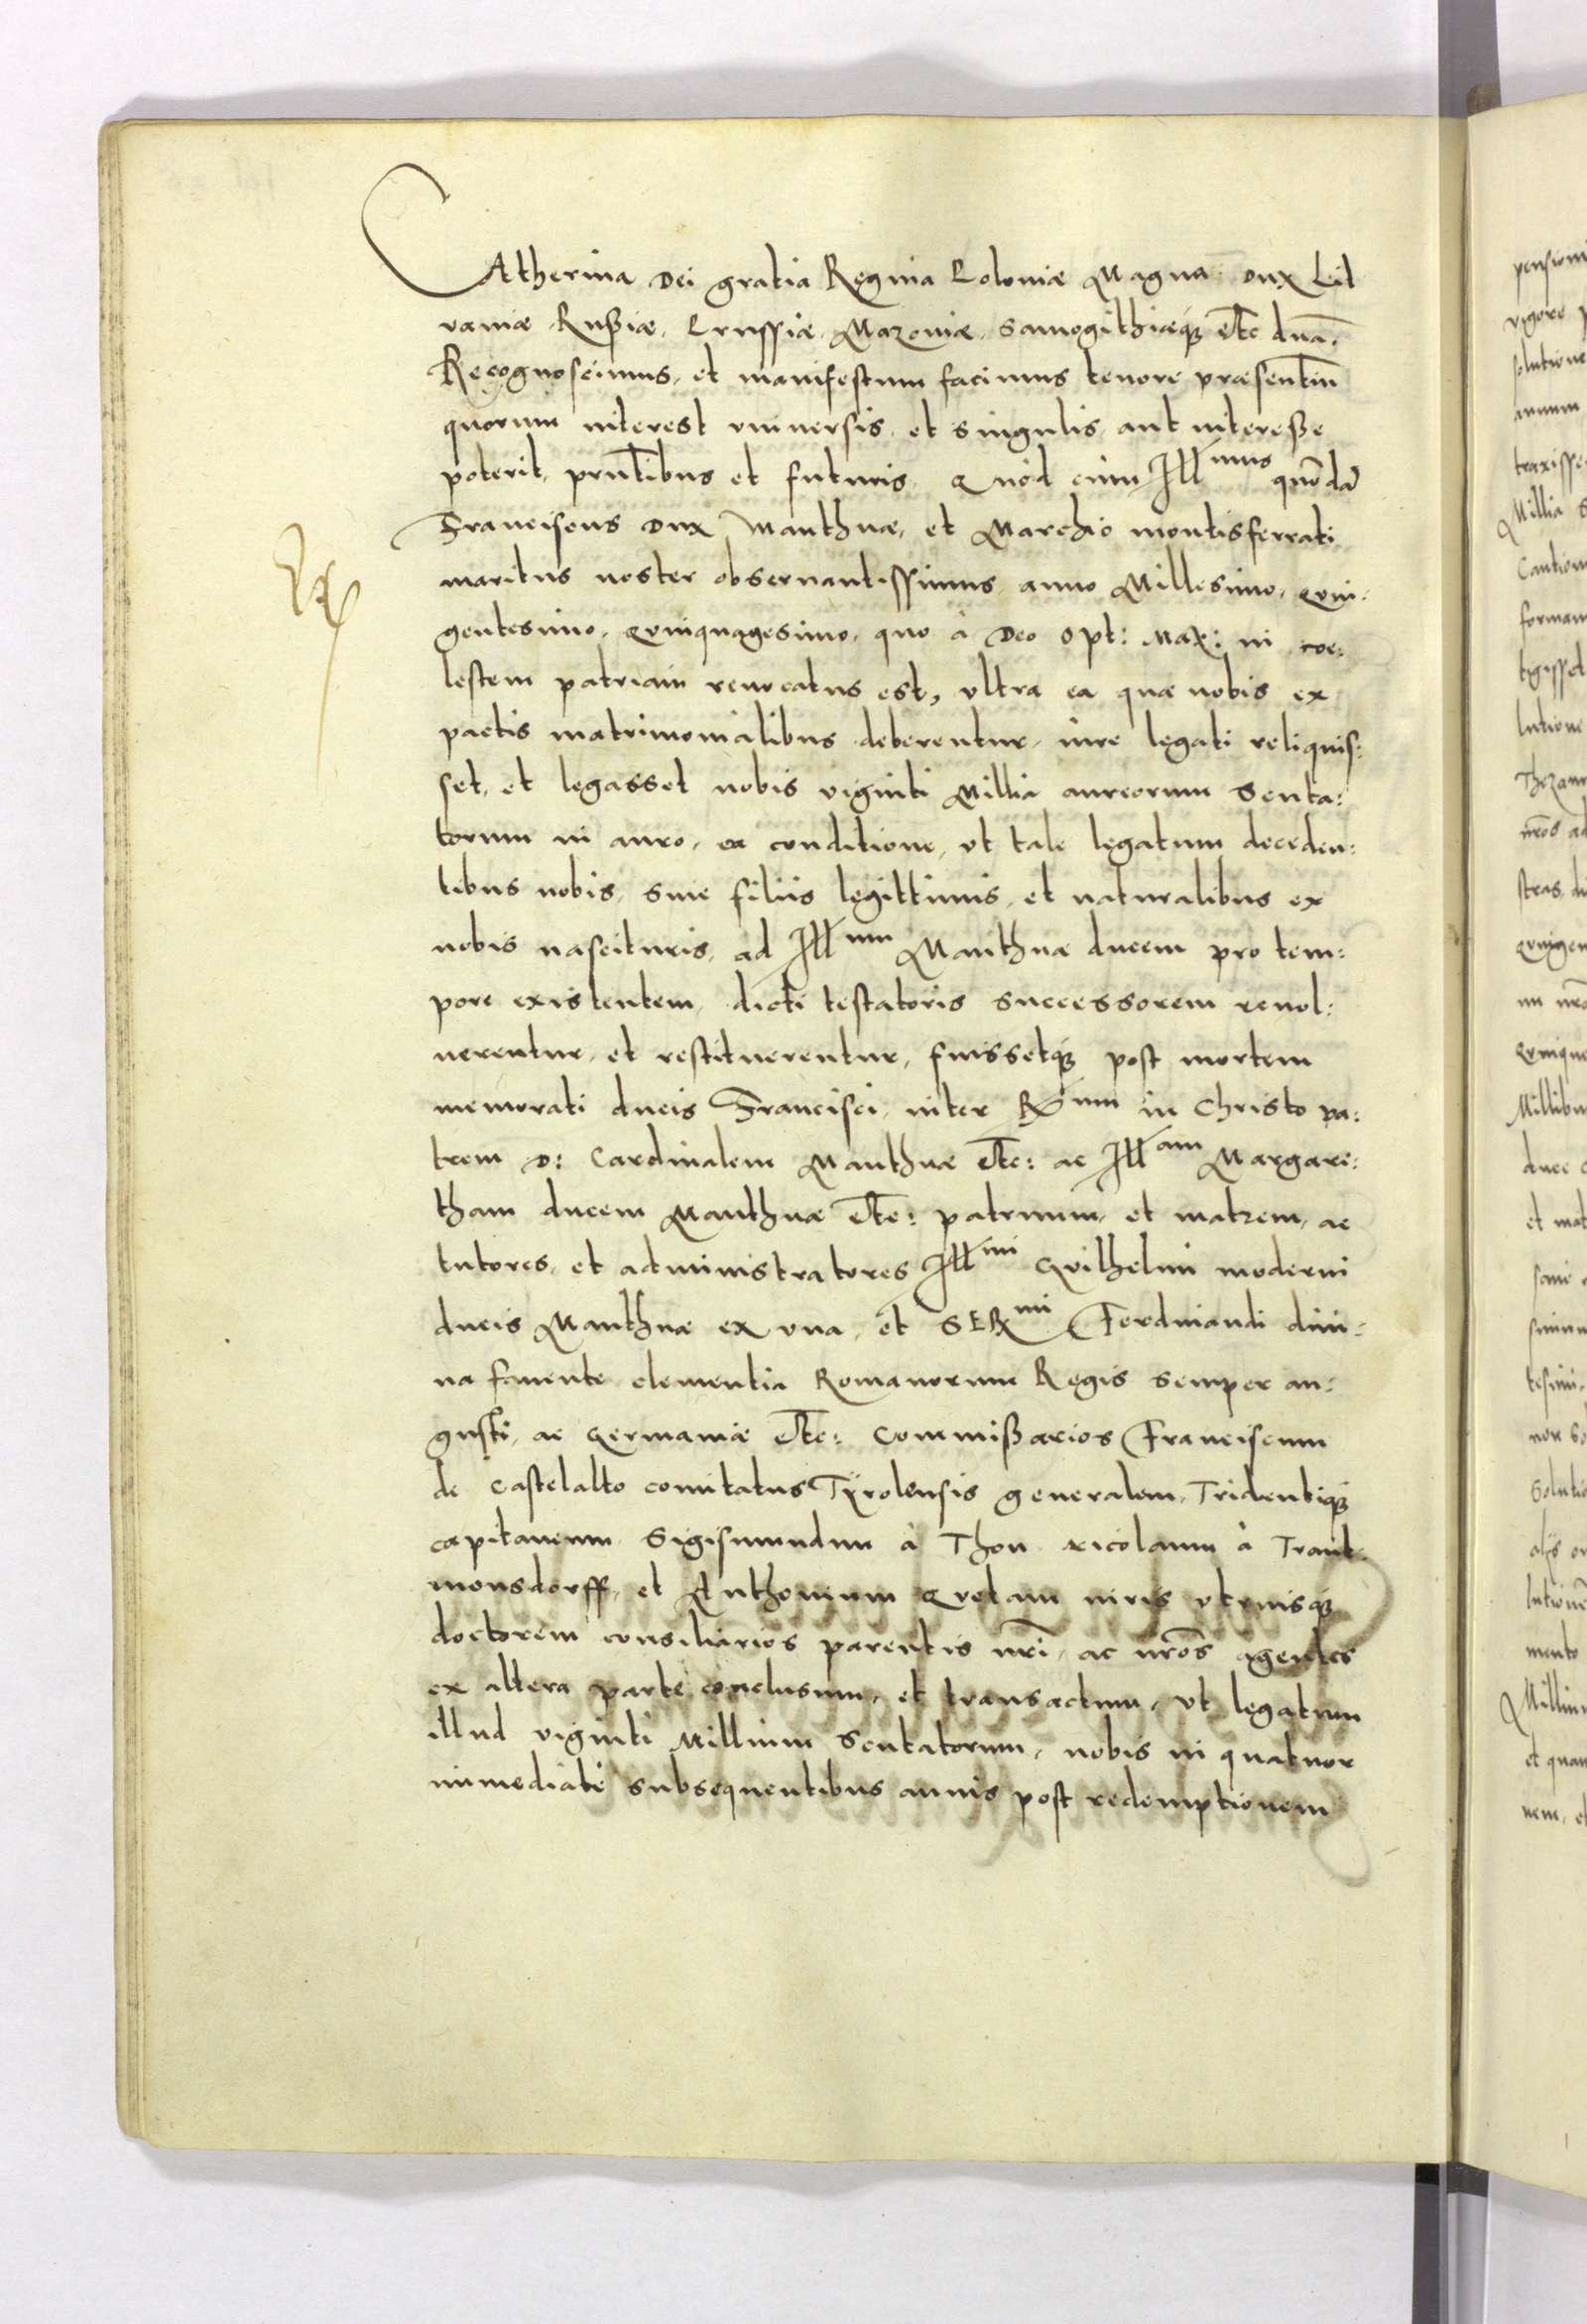 CAtherina Dei gratia Regina Poloniæ Magna Dux Lit
vaniæ Rußiæ, Prussiæ, Mazoviæ, Samogithiæq₃ etc dnā,
Recognoscimus, et manifestum facimus tenore præsentiū
quorum interest vniversis, et singulis, aut intereße
poterit, prntibus et futuris, Quòd cùm Illmus quōdā
Franciscus Dux Manthuæ, et Marchio montisferrati
maritus noster observantissimus, anno Millesimo, Qvin:
gentesimo, Qvinquagesimo, quo à Deo opt: Max: in coe:
lestem patriam reuocatus est, vltra ea quæ nobis ex
pactis matrimonialibus deberentur, iure legati reliquis:
set, et legasset nobis viginti Millia aureorum Scuta:
torum in auro, ea conditione, vt tale legatum deceden:
tibus nobis, sine filiis legittimis, et naturalibus ex
nobis nascituris, ad Illum Manthuæ ducem pro tem:
pore existentem, dicti testatoris successorem reuol:
uerentur, et restituerentur, fuissetq₃ post mortem
memorati ducis Francisci, inter Rum in Christo pa:
trem D: Cardinalem Manthuæ etc: ac Illam Margari:
tham ducem Manthuæ etc: patruum, et matrem, ac
tutores, et administratores Illmi Gvilhelmi moderni
ducis Manthuæ ex vna, et SERmi Ferdinandi diui:
na fauente clementia Romanorum Regis semper au:
gusti, ac Germaniæ etc: Commißarios Franciscum
de Castelalto comitatus Tÿrolensis generalem, Tridentiq₃
capitaneum, Sigismundum à Thon, Nicolaum à Traut:
monsdorff, et Anthonium Qvetam iuris vtriusq₃
doctorem consiliarios parentis nrī, ac nrōs agentes
ex altera parte conclusum, et transactum, vt legatum
illud viginti Millium Scutatorum, nobis in quatuor
immediatè subsequentibus annis post redemptionem